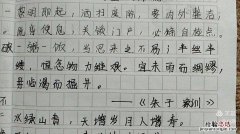 黎明即起，洒扫庭除，要内外整洁；
既昏便息，关锁门户，必亲自检点。
一粥一饭，当思来之不易；半丝半
缕，恒念物力维艰。宜未雨而绸缪，
毋临渴而掘井。
——《朱子家训》
天增岁日人增寿。